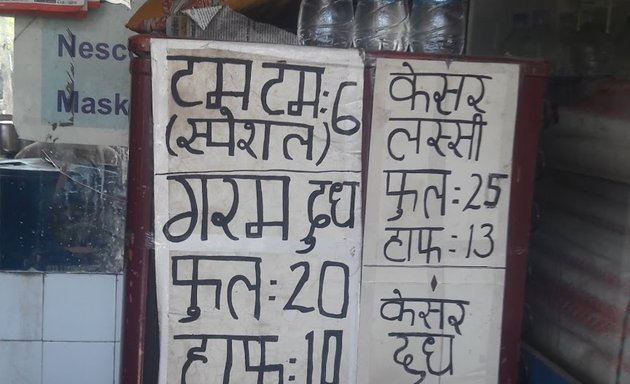 Nesc
Mask
टम टम: 6
(स्पेशल)
गरम दुध
फुल: 20
हाफ: 10
केसर
लस्सी
फुल: 25
हाफ: 13
केसर
दुध